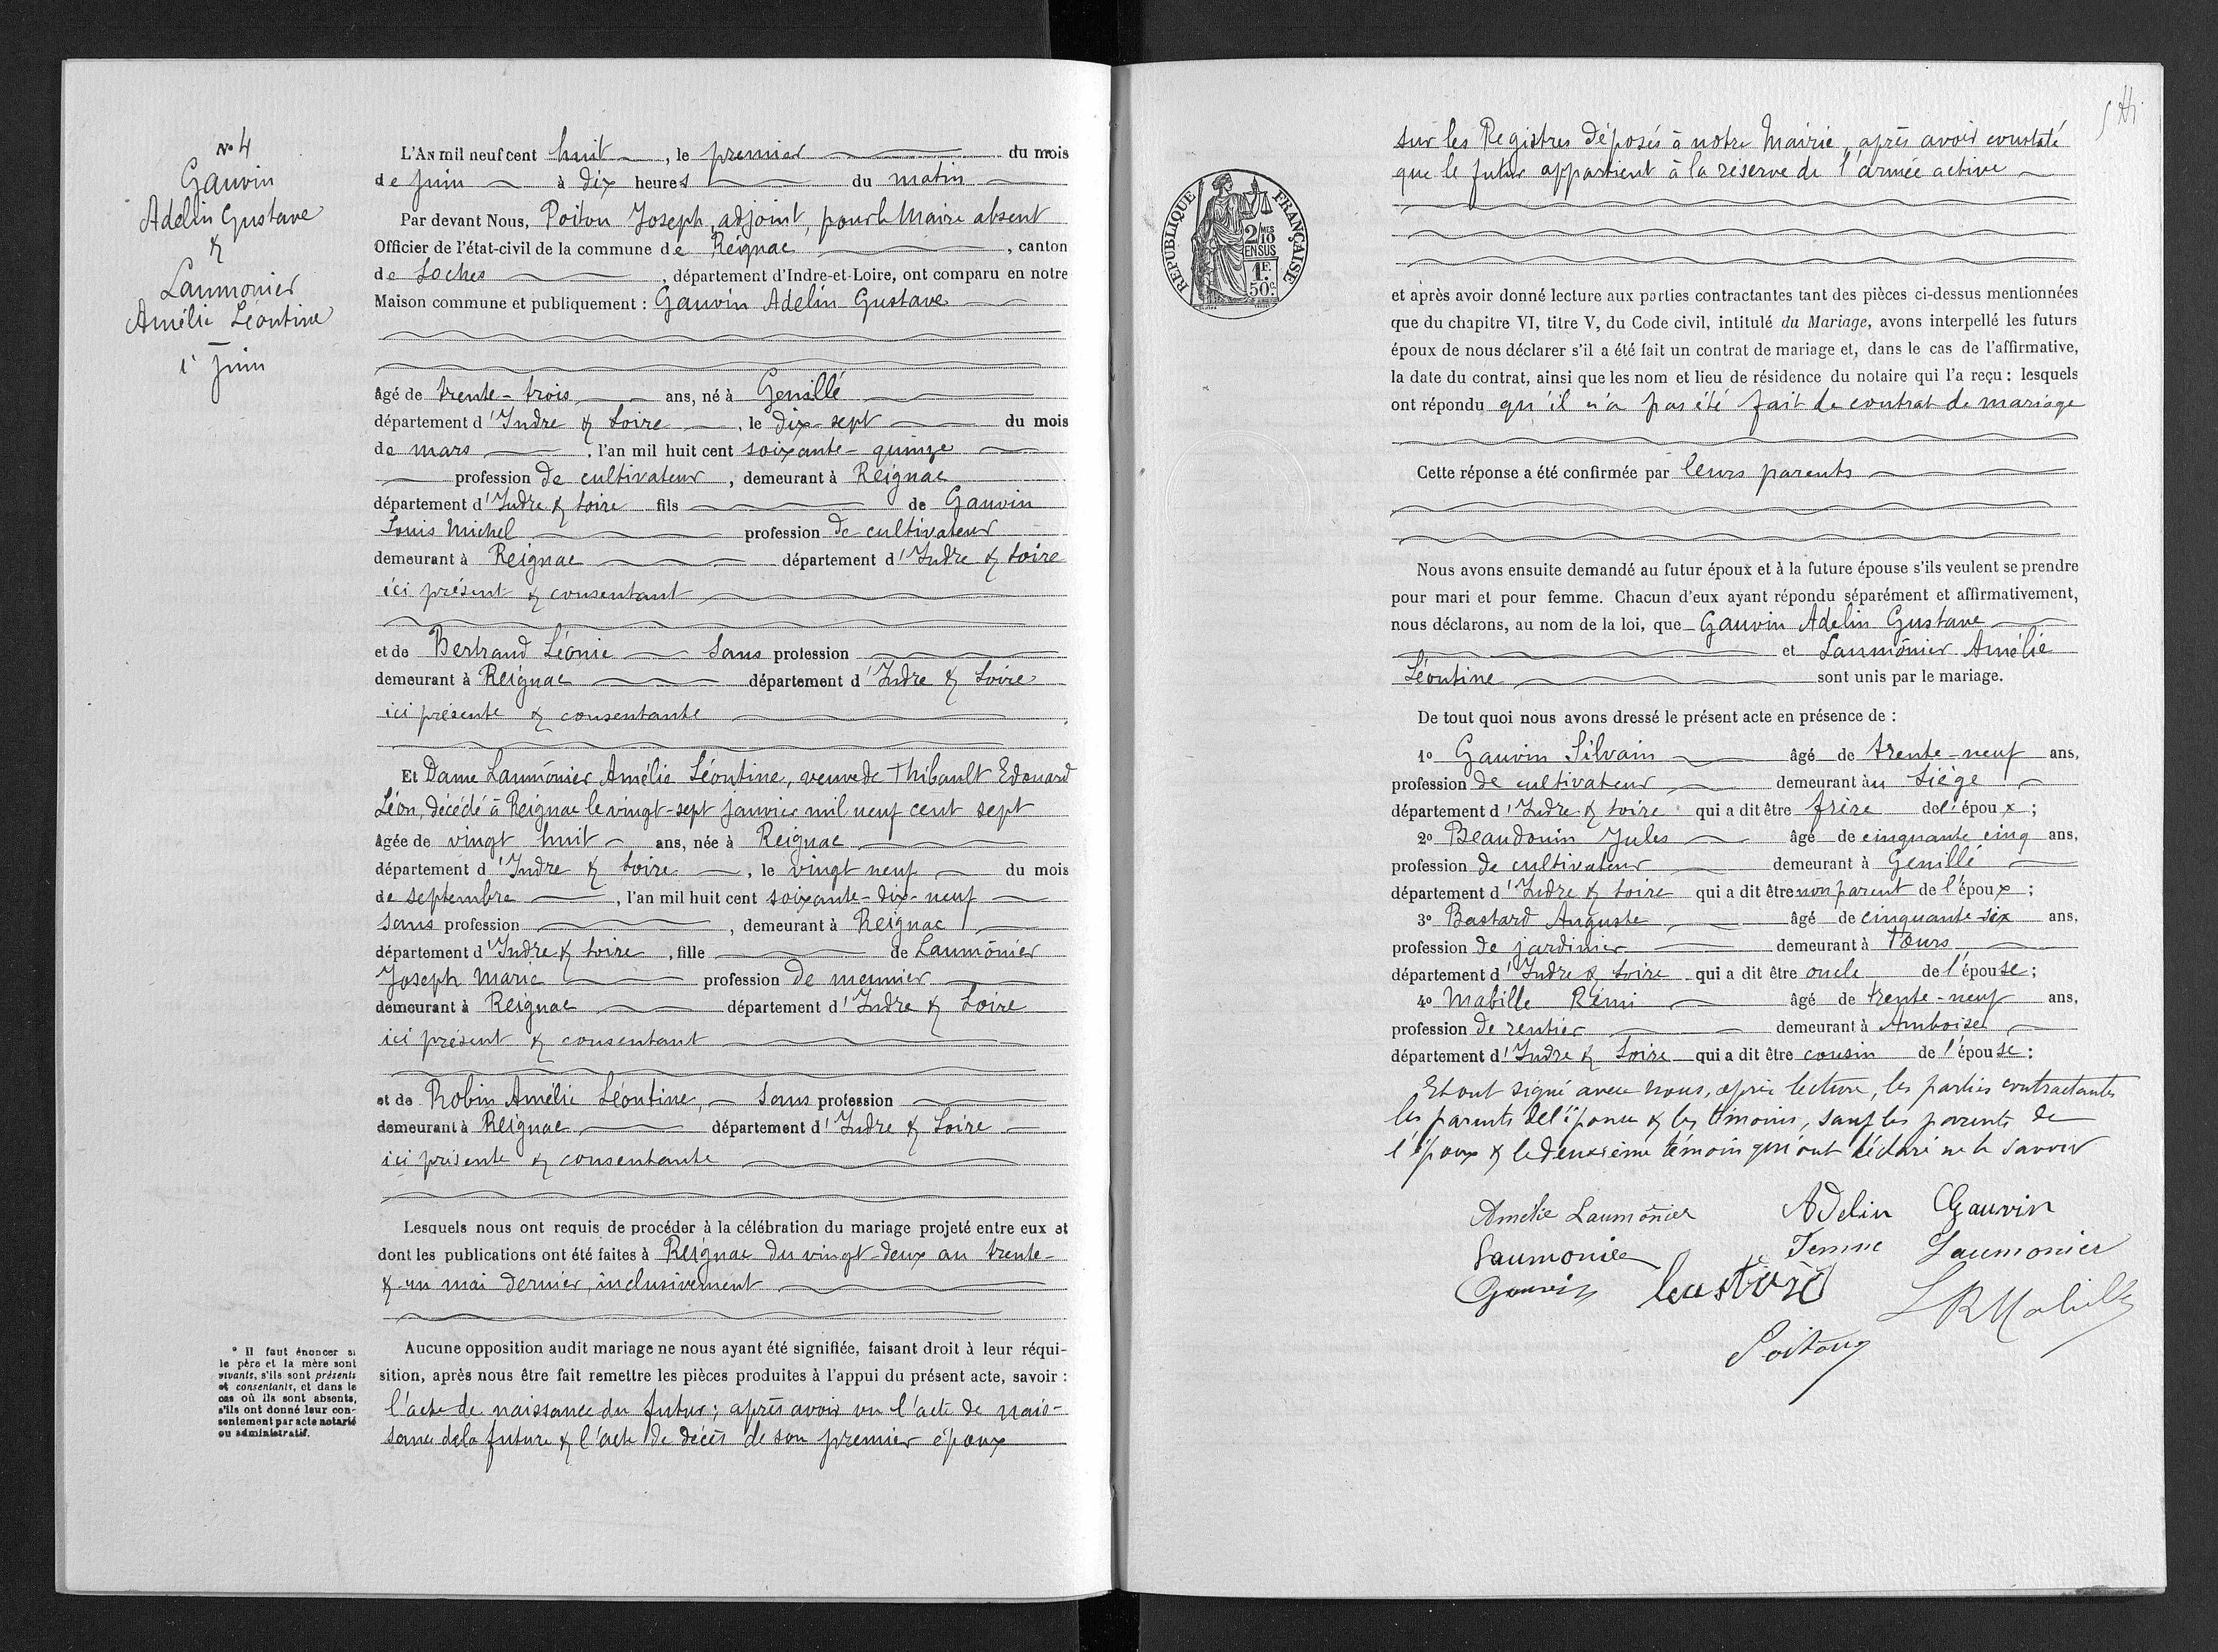 No 4
Gauvin
Adelin Gustave
&
Laumonier
Amélie Léontine
1er Juin
L'AN mil neuf cent huit, le premier du mois
de Juin à dix heures du matin
Par devant Nous, Poitou Joseph, adjoint, pour le Maire absent
Officier de l'état-civil de la commune de Reignac, canton
de Loches, département d'Indre-et-Loire, ont comparu en notre
Maison commune et publiquement : Gauvin Adelin Gustave
âgé de trente-trois ans, né à Genillé
département d'Indre & Loire, le dix-sept du mois
de mars, l'an mil huit cent soixante-quinze
profession de cultivateur, demeurant à Reignac
département d'Indre & Loire fils de Gauvin
Louis Michel profession de cultivateur
demeurant à Reignac département d'Indre & Loire
ici présent & consentant
et de Bertrand Léonie Sans profession
demeurant à Reignac département d'Indre & Loire
ici présente & consentante
Et Dame Laumônier Amélie Léontine, veuve de Thibault Edouard
Léon, décédé à Reignac le vingt-sept janvier mil neuf cent sept
âgée de vingt huit ans, née à Reignac
département d'Indre & Loire, le vingt neuf du mois
de septembre, l'an mil huit cent soixante-dix-neuf
sans profession, demeurant à Reignac
département d'Indre & Loire, fille de Laumônier
Joseph Marie profession de meunier
demeurant à Reignac département d'Indre & Loire
ici présent & consentant
et de Robin Amélie Léontine, Sans profession
demeurant à Reignac département d'Indre & Loire
ici présente & consentante
Lesquels nous ont requis de procéder à la célébration du mariage projeté entre eux et
dont les publications ont été faites à Reignac du vingt-deux au trente-
& un mai dernier, inclusivement
Aucune opposition audit mariage ne nous ayant été signifiée, faisant droit à leur réqui-
sition, après nous être fait remettre les pièces produites à l'appui du présent acte, savoir :
l'acte de naissance du futur; après avoir vu l'acte de nais-
sance de la future & l'acte de décès de son premier époux
* Il faut énoncer si
le père et la mère sont
vivants, s'ils sont présents
et consentants, et dans le
cas où ils sont absents,
s'ils ont donné leur con-
sentement par acte notarié
ou administratif.
sur les Registres déposés à notre Mairie, après avoir constaté
que le futur appartient à la réserve de l'armée active
RÉPUBLIQUE FRANÇAISE
2/10 MES
EN SUS
1F.
50c.
et après avoir donné lecture aux parties contractantes tant des pièces ci-dessus mentionnées
que du chapitre VI, titre V, du Code civil, intitulé du Mariage, avons interpellé les futurs
époux de nous déclarer s'il a été fait un contrat de mariage et, dans le cas de l'affirmative,
la date du contrat, ainsi que les nom et lieu de résidence du notaire qui l'a reçu : lesquels
ont répondu qu'il n'a pas été fait de contrat de mariage
Cette réponse a été confirmée par leurs parents
Nous avons ensuite demandé au futur époux et à la future épouse s'ils veulent se prendre
pour mari et pour femme. Chacun d'eux ayant répondu séparément et affirmativement,
nous déclarons, au nom de la loi, que Gauvin Adelin Gustave
et Laumônier Amélie
Léontine sont unis par le mariage.
De tout quoi nous avons dressé le présent acte en présence de :
1o Gauvin Silvain âgé de trente-neuf ans,
profession de cultivateur demeurant au Liège
département d'Indre & Loire qui a dit être frère de l'époux ;
2o Beaudouin Jules âgé de cinquante cinq ans,
profession de cultivateur demeurant à Genillé
département d'Indre & Loire qui a dit être non parent de l'époux ;
3o Bastard Auguste âgé de cinquante-six ans,
profession de jardinier demeurant à Tours
département d'Indre & Loire qui a dit être oncle de l'épouse ;
4o Mabille Rémi âgé de trente-neuf ans,
profession de rentier demeurant à Amboise
département d'Indre & Loire qui a dit être cousin de l'épouse :
Et ont signé avec nous, après lecture, les parties contractantes
les parents de l'épouse & les témoins, sauf les parents de
l'époux & le deuxième témoin qui ont déclaré ne le savoir
Amélie Laumônier Adelin Gauvin
Laumonier Femme Laumonier
Gauvin Bastard LRMabille
Poitou